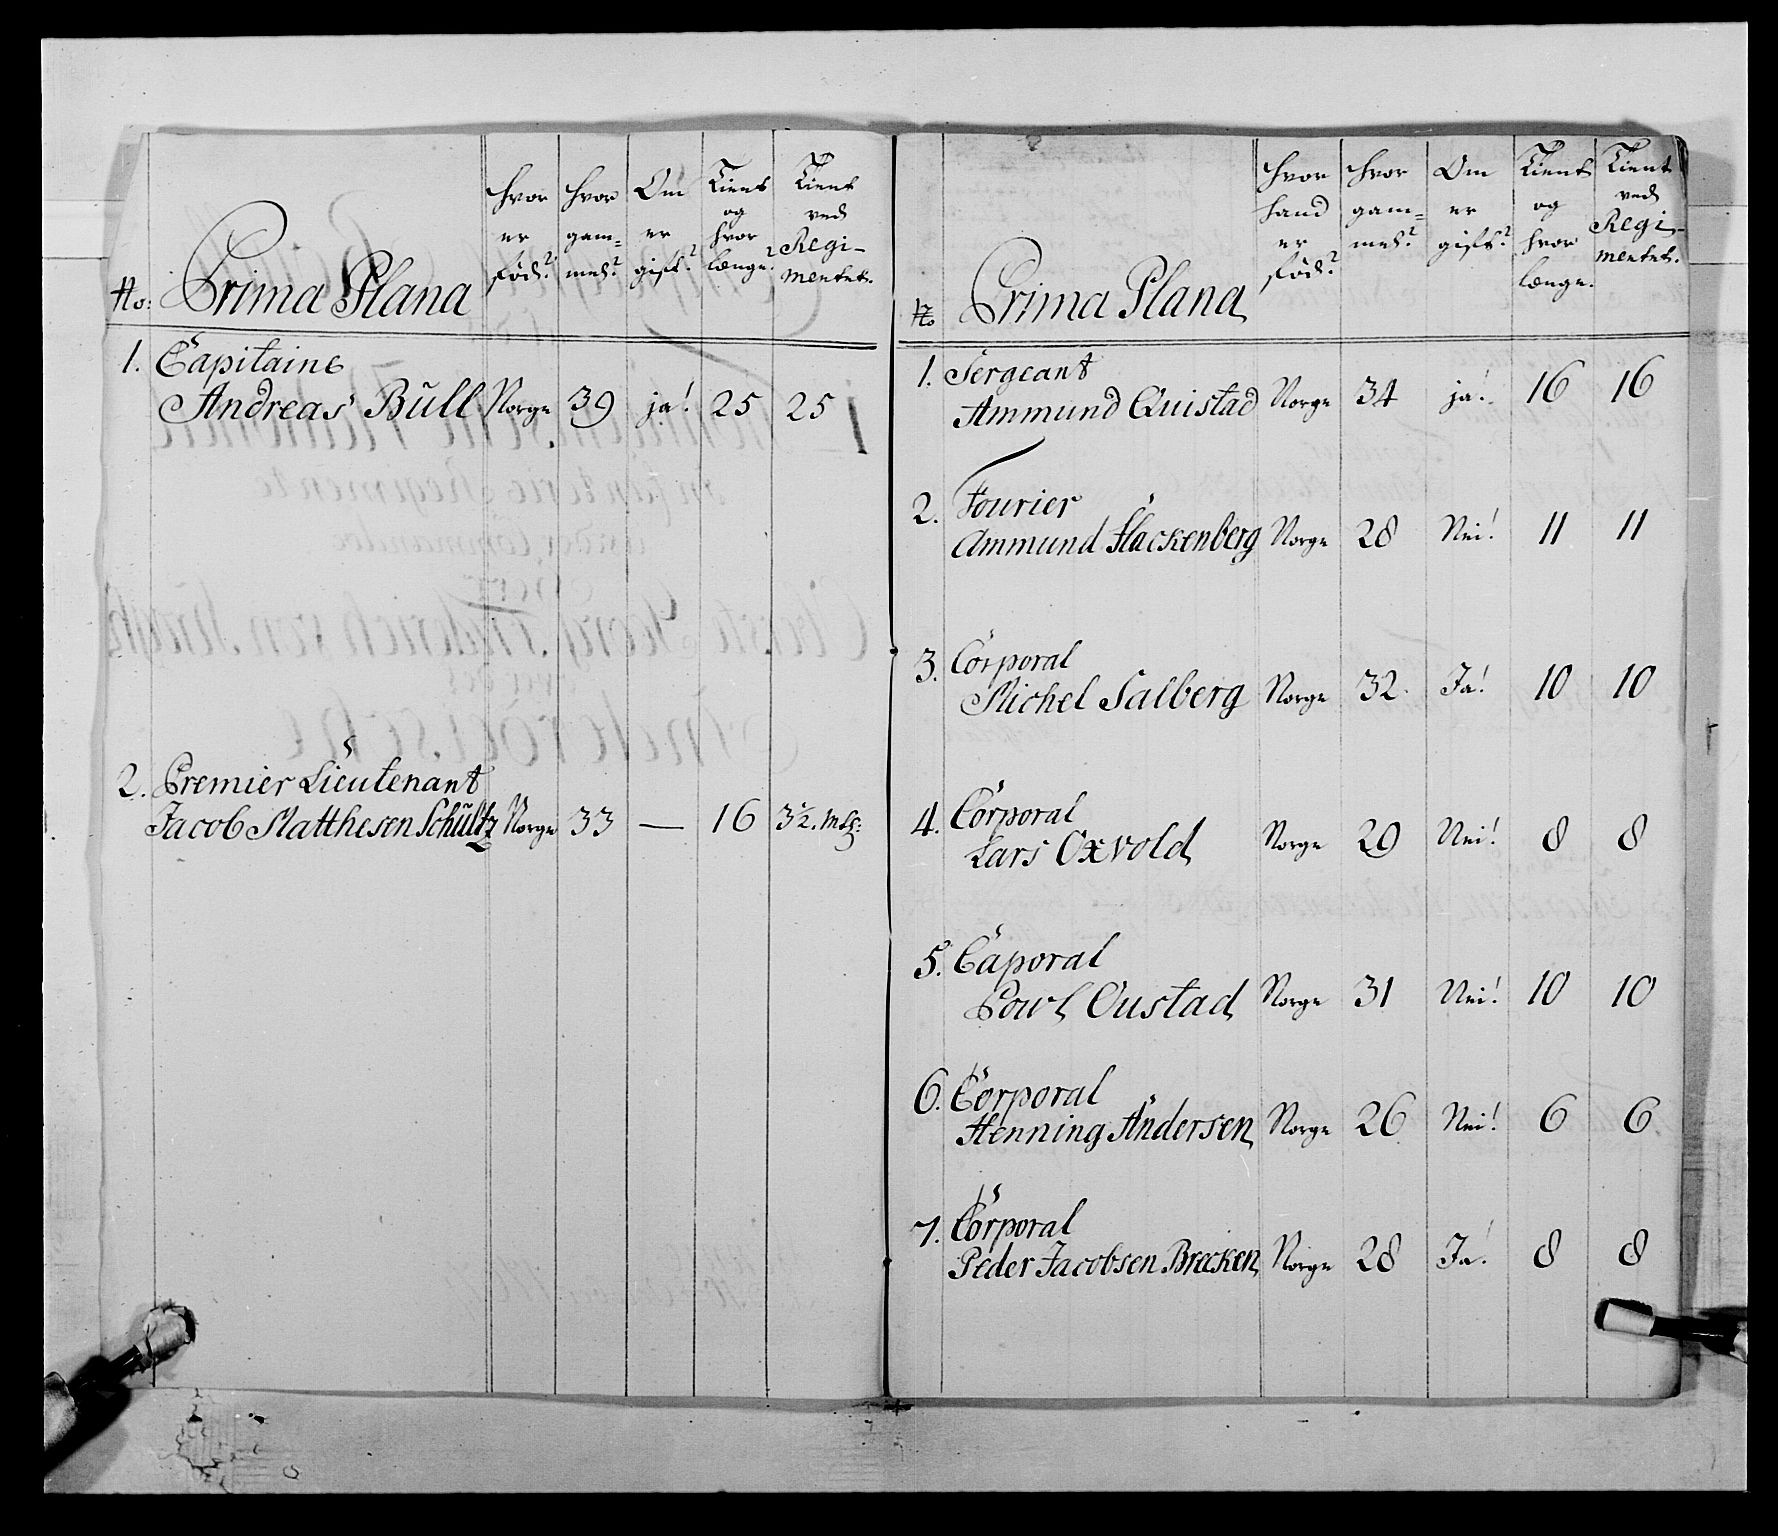 No: Prima Plana
hvor er fød? hvor gam= mel? Om er gift? Tient og hvor længe? Tient ved Regi- mentet.
1. Capitaine
Andreas Büll Norge 39 ja! 25 25
2. Premier Lieutenant
Jacob Matthesen Schültz Norge 33 — 16 3½. Mtz:
No Prima Plana
hvor hand er fød? hvor gam= mel? Om er gift? Tient og hvor længe. Tient ved Regi- mentet.
1. Sergeant
Ammund Quistad Norge 34 ja! 16 16
2. Fourier
Ammund Flackenberg Norge 28 Nei! 11 11
3. Corporal
Michel Salberg Norge 32. Ja! 10 10
4. Corporal
Lars Oxvold Norge 29 Nei! 8 8
5. Caporal
Powl Oustad Norge 31 Nei! 10 10
6. Corporal
Henning Andersen Norge 26 Nei! 6 6
7. Corporal
Peder Jacobsen Brecken Norge 28 Ja! 8 8